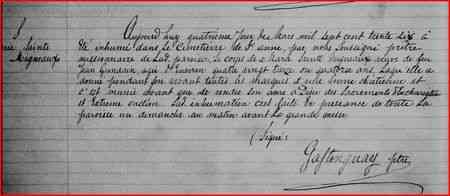 S
Marie Sainte
Mignaux
Aujourd'huy quatrième jour de Mars mil sept cent trente six à
été inhumé dans le Cimetière de Ste anne par nous soussigné prêtre
missionnaire de lad. paroisse, le corps de Marie Sainte Mignaux veuve de feu
Jean Gaudain agée d'environ quatre vingt treize ou quatorze ans, laquelle a
donné pendant son vivant toutes les marques d'une bonne chrétienne et
s'est munie devant que de rendre son ame à Dieu des Sacrements d'Eucharistie
et extreme onction. Lad. inhumation s'est faite en presence de toute la
paroisse un dimanche au matin avant la grande messe
(Signé)
Gastonguay ptre